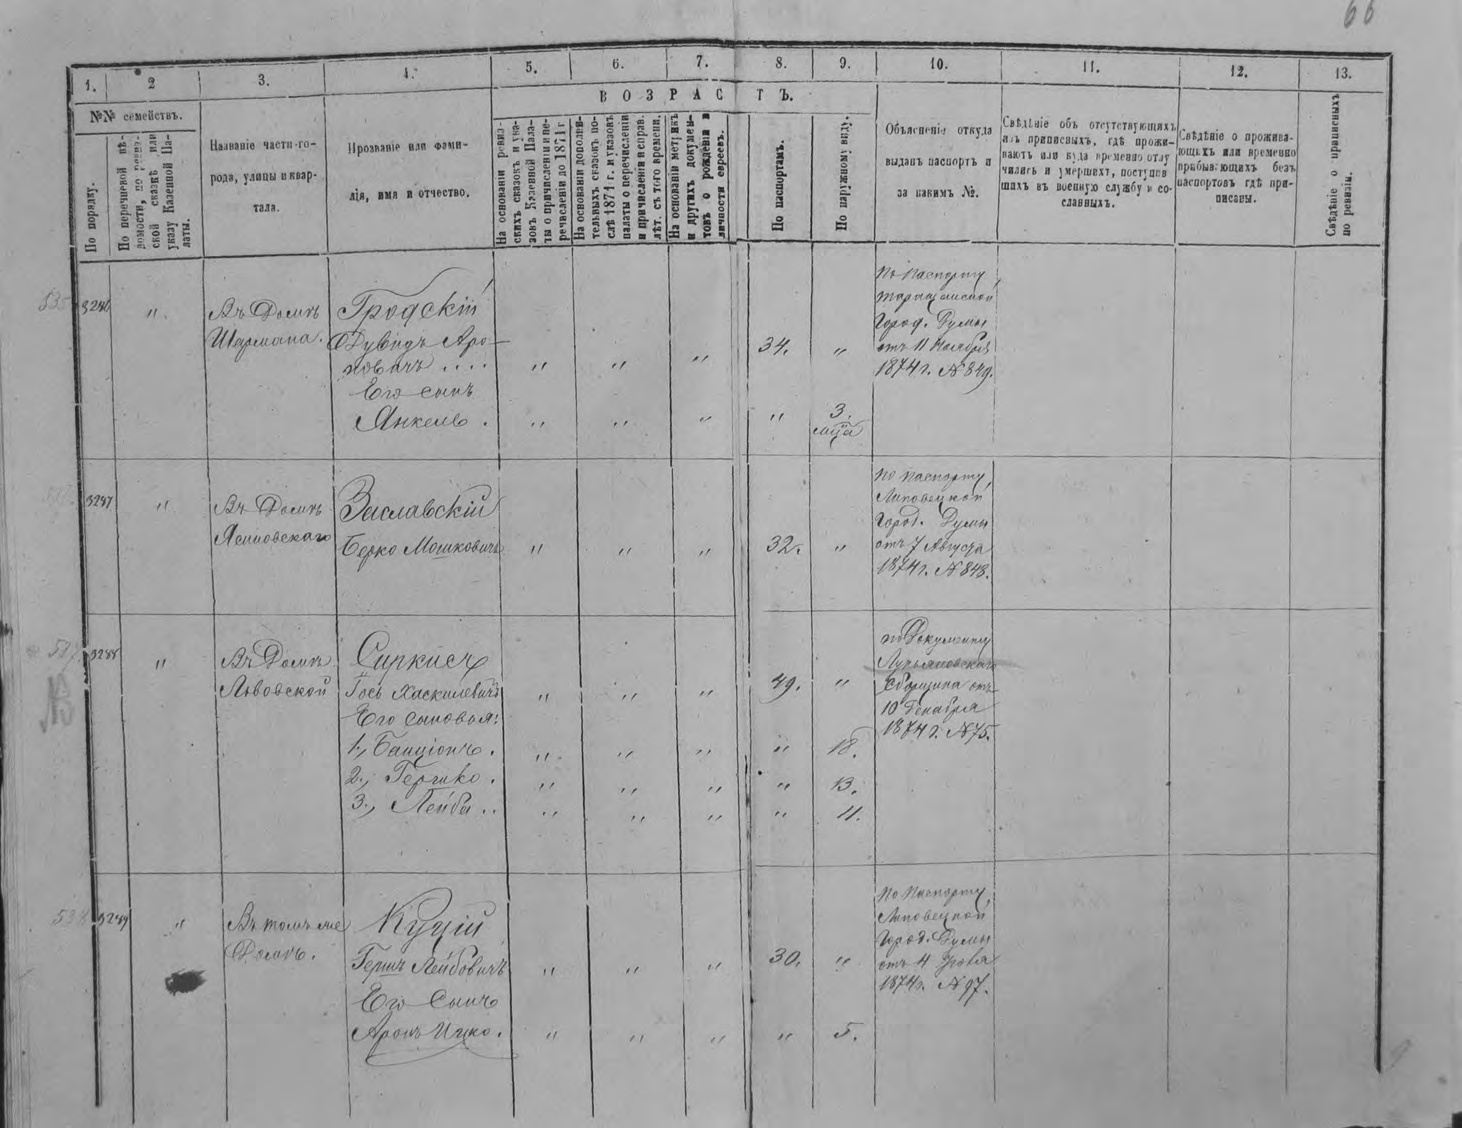 66
1. 2 3. 4. 5. 6. 7. 8. 9. 10. 11. 12. 13.
№№ семействъ.
По порядку.
По перечневой вѣ-
домости, по ревиз-
ской сказкѣ или
указу Казенной Па-
латы.
Названіе части го-
рода, улицы и квар-
тала.
Прозваніе или фами-
лія, имя и отчество.
ВОЗРАСТЪ.
На основаніи ревиз-
скихъ сказокъ и ука-
зовъ Казенной Пала-
ты о причисленіи и пе-
речисленіи до 1871 г.
На основаніи дополни-
тельныхъ сказокъ по-
слѣ 1871 г. и указовъ
палаты о перечисленіи
и причисленіи и справ.
лѣт. съ того времени.
На основаніи метрикъ
и другихъ докумен-
товъ о рожденіи и
личности евреевъ.
По паспортамъ.
По наружному виду.
Объясненіе откуда
выданъ паспортъ и
за какимъ №.
Свѣдѣніе объ отсутствующихъ
изъ приписныхъ, гдѣ прожи-
ваютъ или куда временно отлу
чились и умершихъ, поступив
шихъ въ военную службу и со-
сланныхъ.
Свѣдѣніе о прожива-
ющихъ или временно
прибывающихъ безъ
паспортовъ гдѣ при-
писаны.
Свѣдѣніе о приписныхъ
по ревизіи.
3286 " Въ Домѣ
Шармана.
Гродскій
Дувидъ Аро-
новичъ .... " " " 34. "
Его сынъ
Янкель . " " " " 3.
мца
По паспорту
Город. Думы
отъ 11 Ноября
1874 г. № 849.
3287 " Въ Домѣ
Ясиновскаго
Заславскій
Берко Мошковичъ " " " 32. "
По паспорту
Липовецкой
Город. Думы
отъ 7 Августа
1874 г. № 848.
3288 " Въ Домѣ
Львовской
Сиркисъ
Гось Хаскилевичъ " " " 49. "
Его сыновья:
1., Банціонъ . " " " " 18.
2., Гершко . " " " " 13.
3., Лейба .. " " " " 11.
по Документу
Лукьяновскаго
Сборщика отъ
10 Декабря
1874 г. № 75.
538 3289 " Въ томъ же
Домѣ.
Куцій
Гершъ Лейбовичъ " " " 30. "
Его сынъ
Аронъ Ицко . " " " " 5.
По паспорту
Липовецкой
Город. Думы
отъ 4
1874 г. № 97.